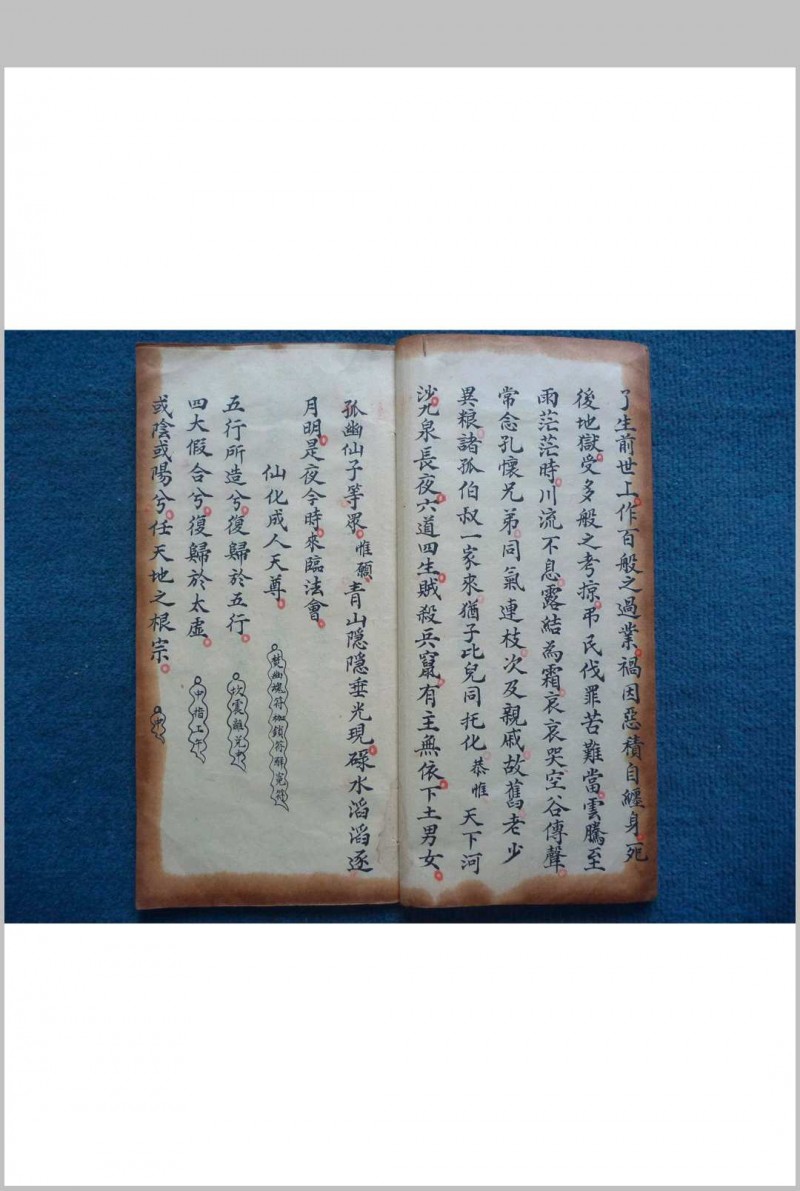 了生前世上作百般之過業禍因惡積自纏身死
後地獄受多般之考掠弔民伐罪苦難當雲騰至
雨茫茫時川流不息露結為霜哀哀哭空谷傳聲
常念孔懷兄弟同氣連枝次及親戚故舊老少
異粮諸孤伯叔一家來猶子比兒同托化恭惟天下河
沙九泉長夜六道四生賊殺兵竄有主無依下土男女
孤幽仙子等眾惟願青山隱隱垂光現碌水滔滔逐
月明是夜今時來臨法會
仙化成人天尊
焚幽魂符枷鎖符解冤符
五行所造兮復歸於五行
坎震離兌中
四大假合兮復歸於太虛
中指上午
或陰或陽兮任天地之根宗